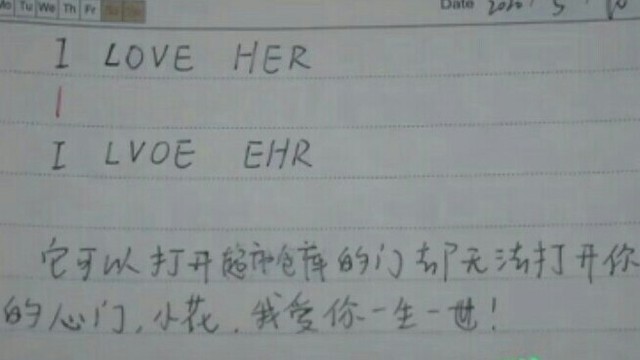 Mo Tu We Th Fr Sa Su
Date 2020 / 5 /
I LOVE HER
I LVOE EHR
它可以打开超市仓库的门却无法打开你
的心门,小花,我爱你一生一世!